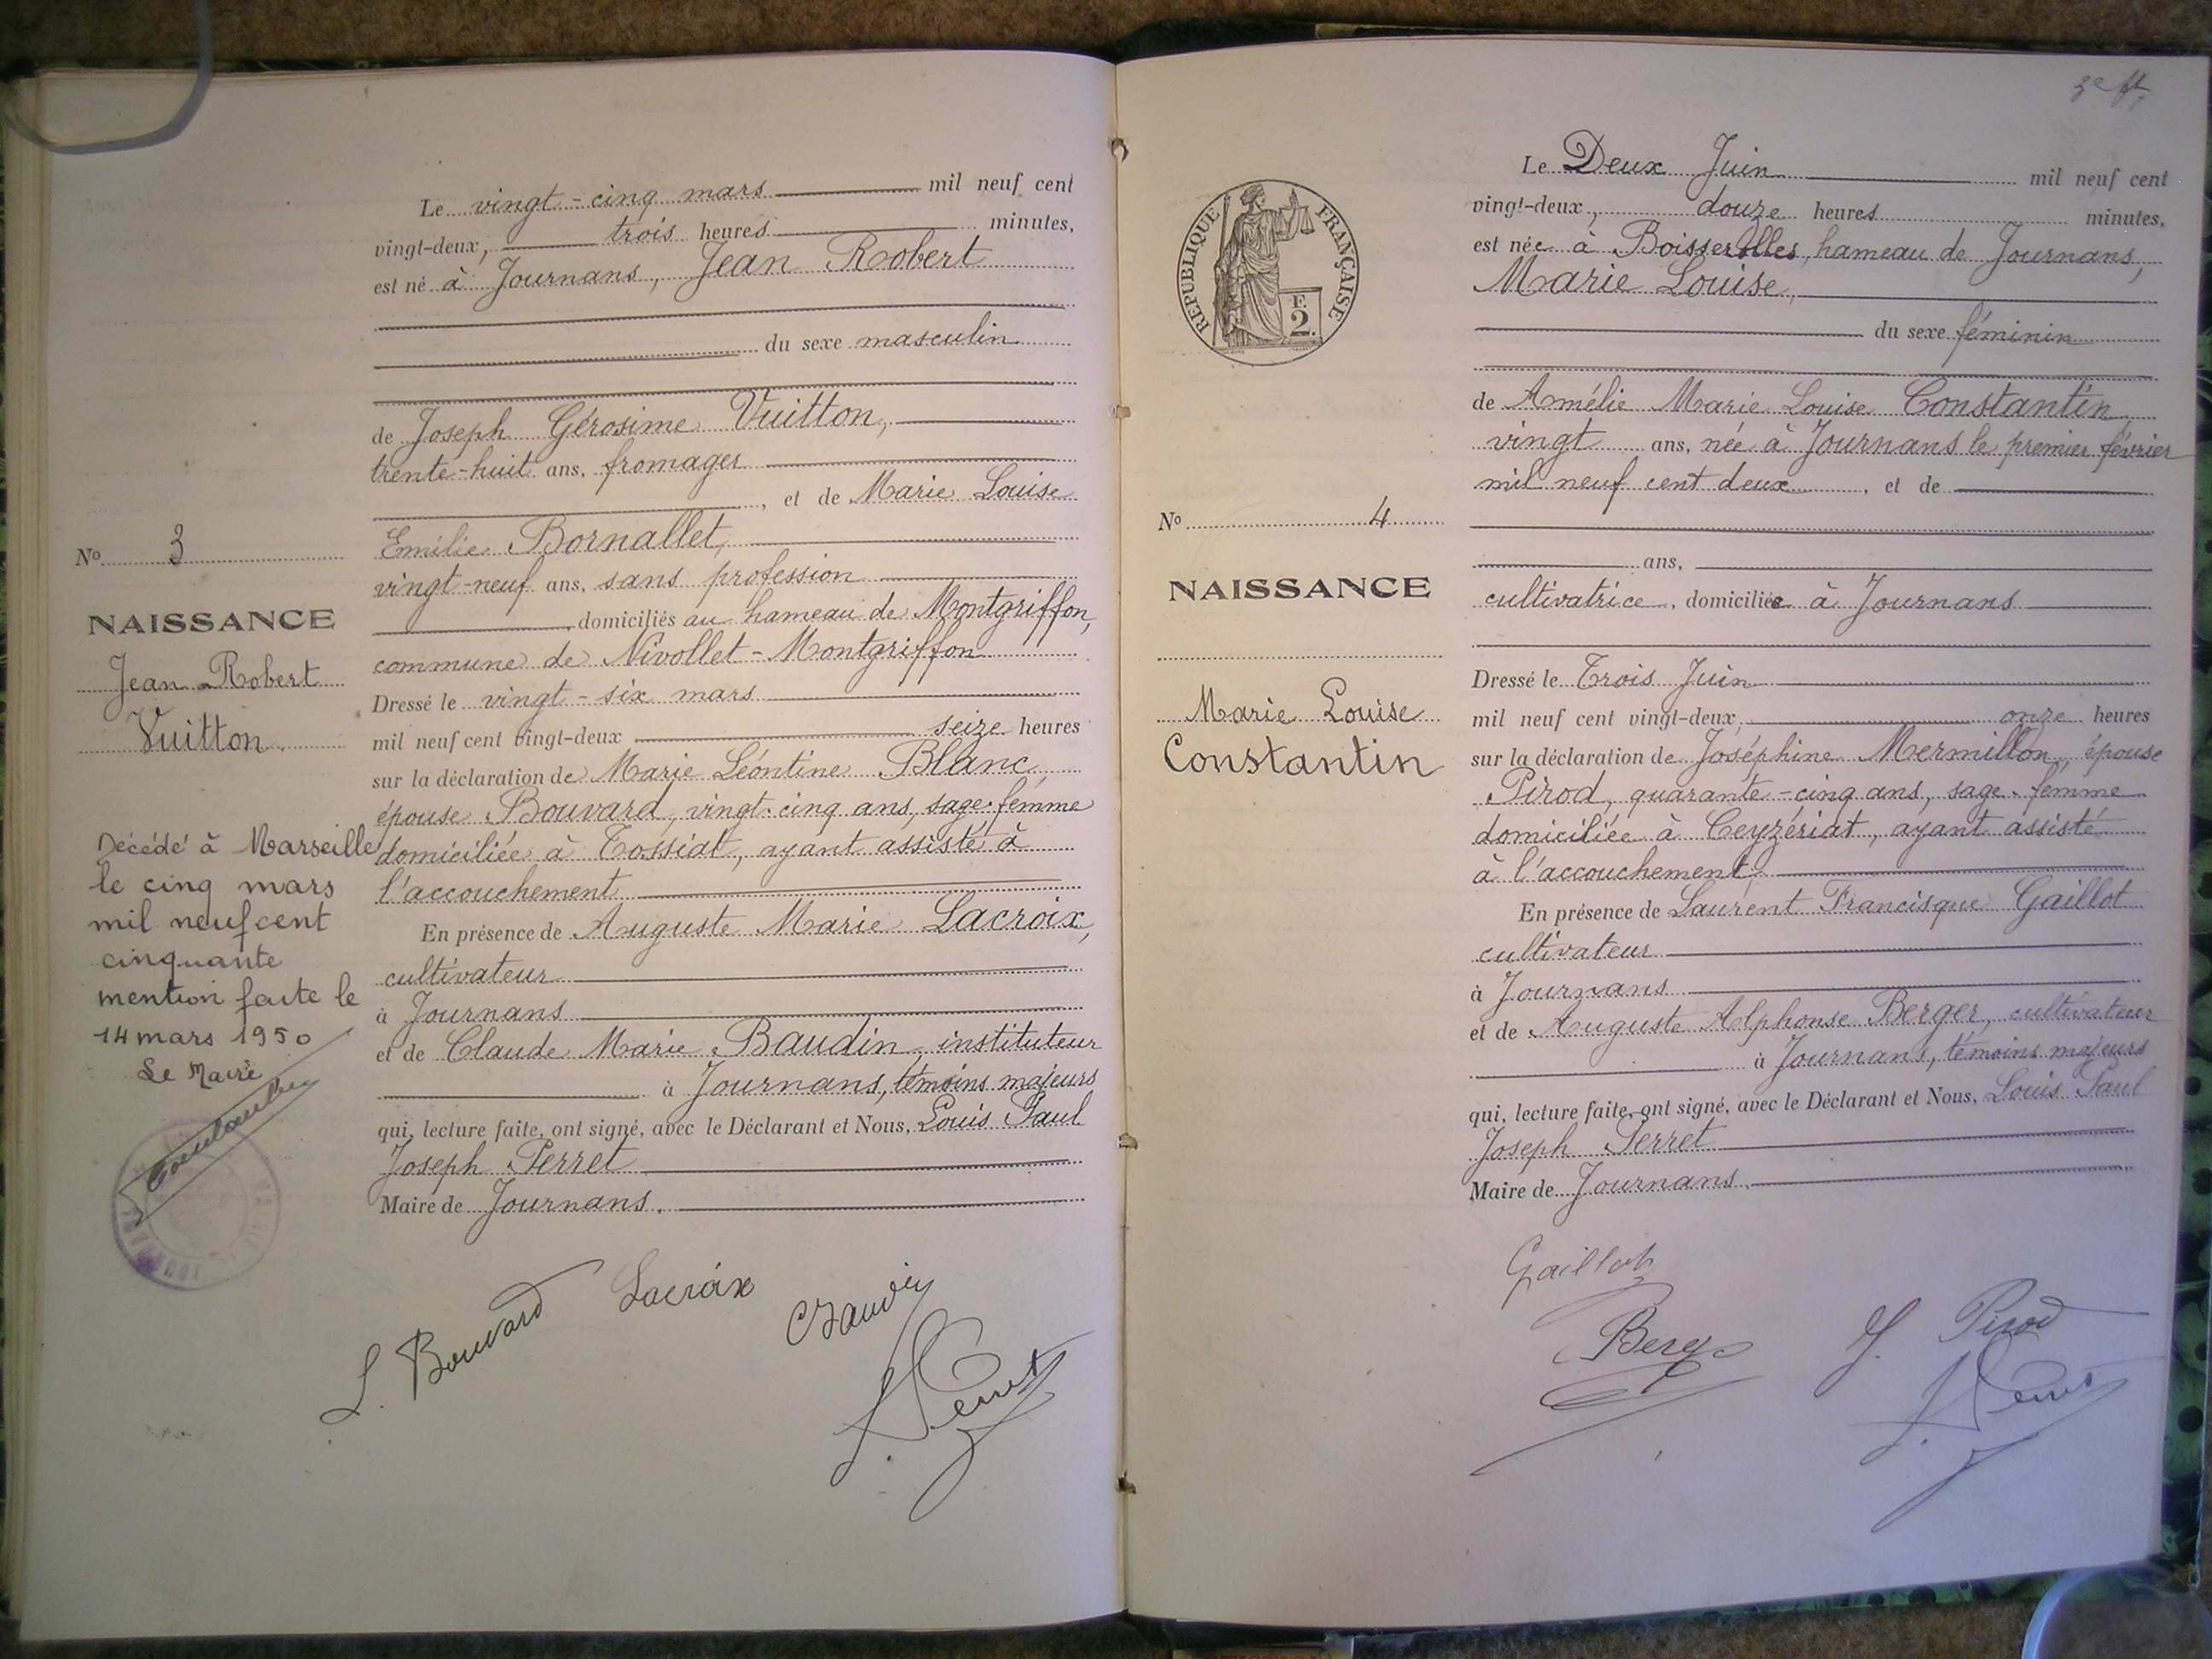 Le vingt-cinq mars mil neuf cent
vingt-deux, trois heures minutes,
est né à Journans, Jean Robert
du sexe masculin
de Joseph Gérosime Vuitton,
trente-huit ans, fromager
, et de Marie Louise
Emilie Bornallet,
vingt-neuf ans, sans profession
domiciliés au hameau de Montgriffon,
commune de Nivollet-Montgriffon
Dressé le vingt-six mars
mil neuf cent vingt-deux seize heures
sur la déclaration de Marie Léontine Blanc
épouse Bouvard, vingt-cinq ans, sage-femme
domiciliée à Tossiat, ayant assisté à
l'accouchement
En présence de Auguste Marie Lacroix,
cultivateur
à Journans
et de Claude Marie Baudin, instituteur
à Journans, témoins majeurs
qui, lecture faite, ont signé, avec le Déclarant et Nous, Louis Paul
Joseph Perret
Maire de Journans.
No 3
NAISSANCE
Jean Robert
Vuitton.
Décédé à Marseille
le cinq mars
mil neuf cent
cinquante
mention faite le
14 mars 1950
Le Maire
L. Bouvard Lacroix
Baudin
Perret
3e ft.
RÉPUBLIQUE FRANÇAISE
F.
2.
No 4
NAISSANCE
Marie Louise
Constantin
Le Deux Juin mil neuf cent
vingt-deux, douze heures minutes,
est née à Boisserolles, hameau de Journans,
Marie Louise,
du sexe féminin
de Amélie Marie Louise Constantin,
vingt ans, née à Journans le premier février
mil neuf cent deux, et de
ans,
cultivatrice, domiciliée à Journans
Dressé le Trois Juin
mil neuf cent vingt-deux, onze heures
sur la déclaration de Joséphine Mermillon, épouse
Pirod, quarante-cinq ans, sage-femme
domiciliée à Ceyzériat, ayant assisté
à l'accouchement
En présence de Laurent Francisque Gaillot
cultivateur
à Journans
et de Auguste Alphonse Berger, cultivateur
à Journans, témoins majeurs
qui, lecture faite, ont signé, avec le Déclarant et Nous, Louis Paul
Joseph Perret
Maire de Journans.
Gaillot
Berger
J. Pirod
Perret